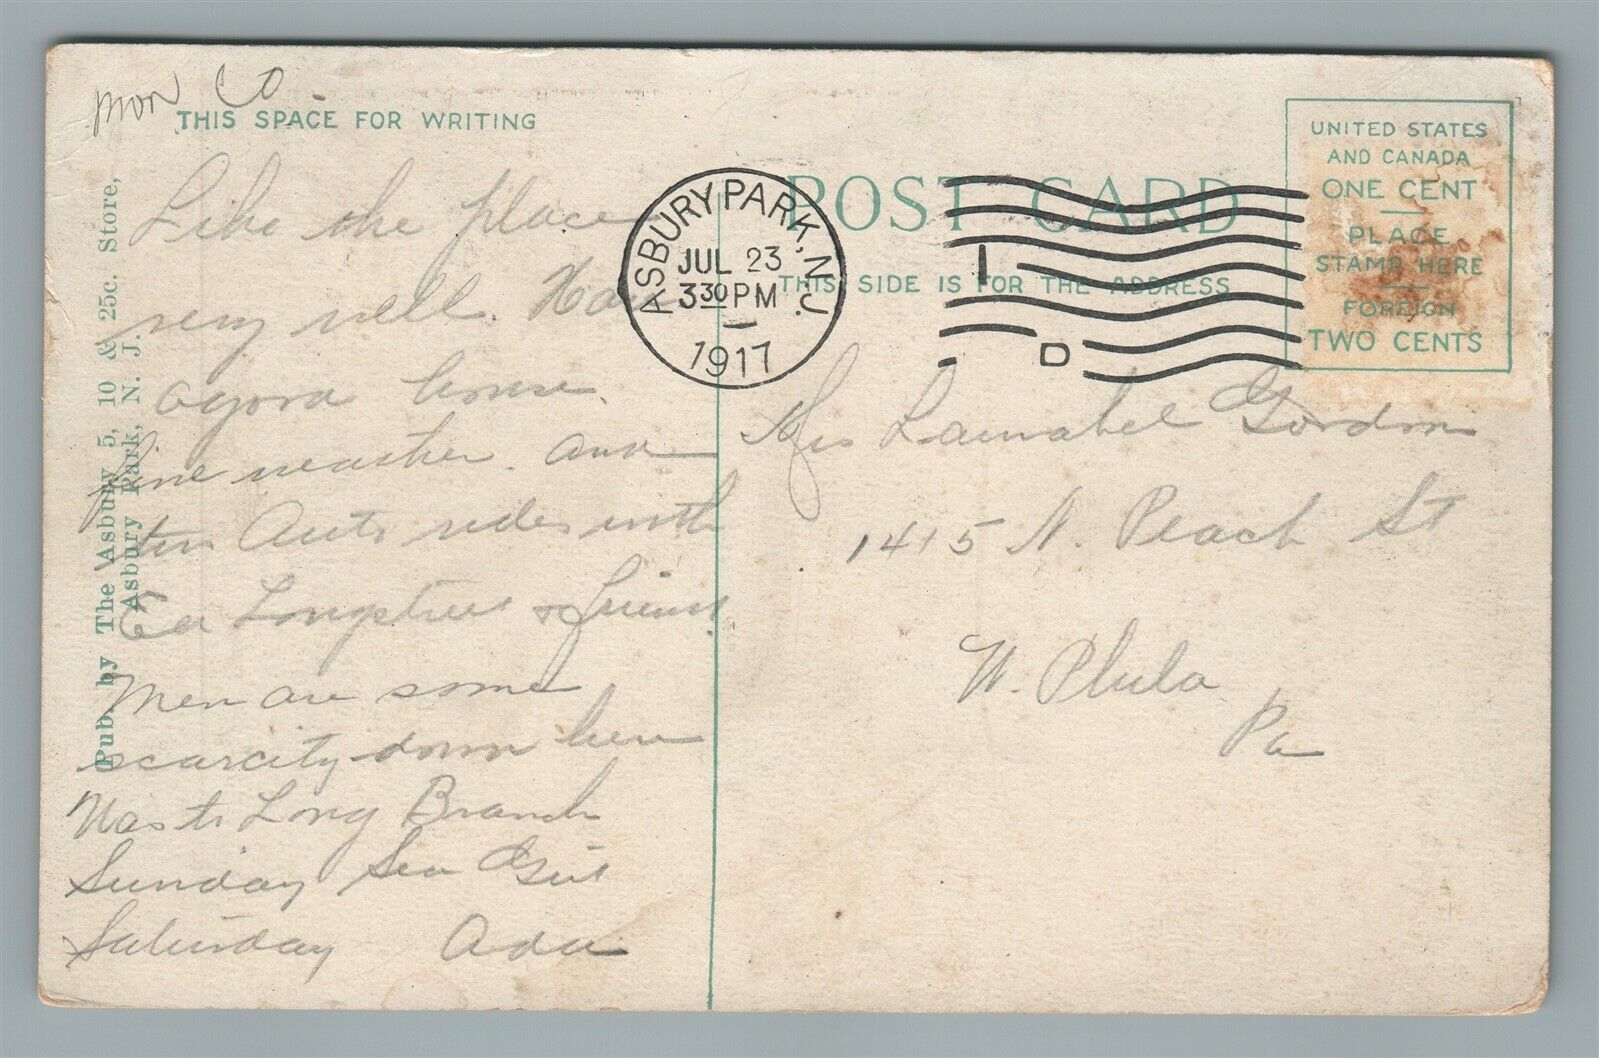 Mon Co
THIS SPACE FOR WRITING
Pub. by The Asbury 5, 10 & 25c. Store,
Asbury Park, N. J.
Like the place
very well. Have
a good house.
fine weather. and
two Auto rides with
Longstreet & friend.
Men are some
scarcity down here
Was to Long Branch
Sunday Sea Girt
Saturday Ada
ASBURY PARK, N.J.
JUL 23
3 30 PM
1917
POST CARD
THIS SIDE IS FOR THE ADDRESS
UNITED STATES
AND CANADA
ONE CENT
PLACE
STAMP HERE
FOREIGN
TWO CENTS
Gordon
1415 N. Peach St
W. Phila
Pa